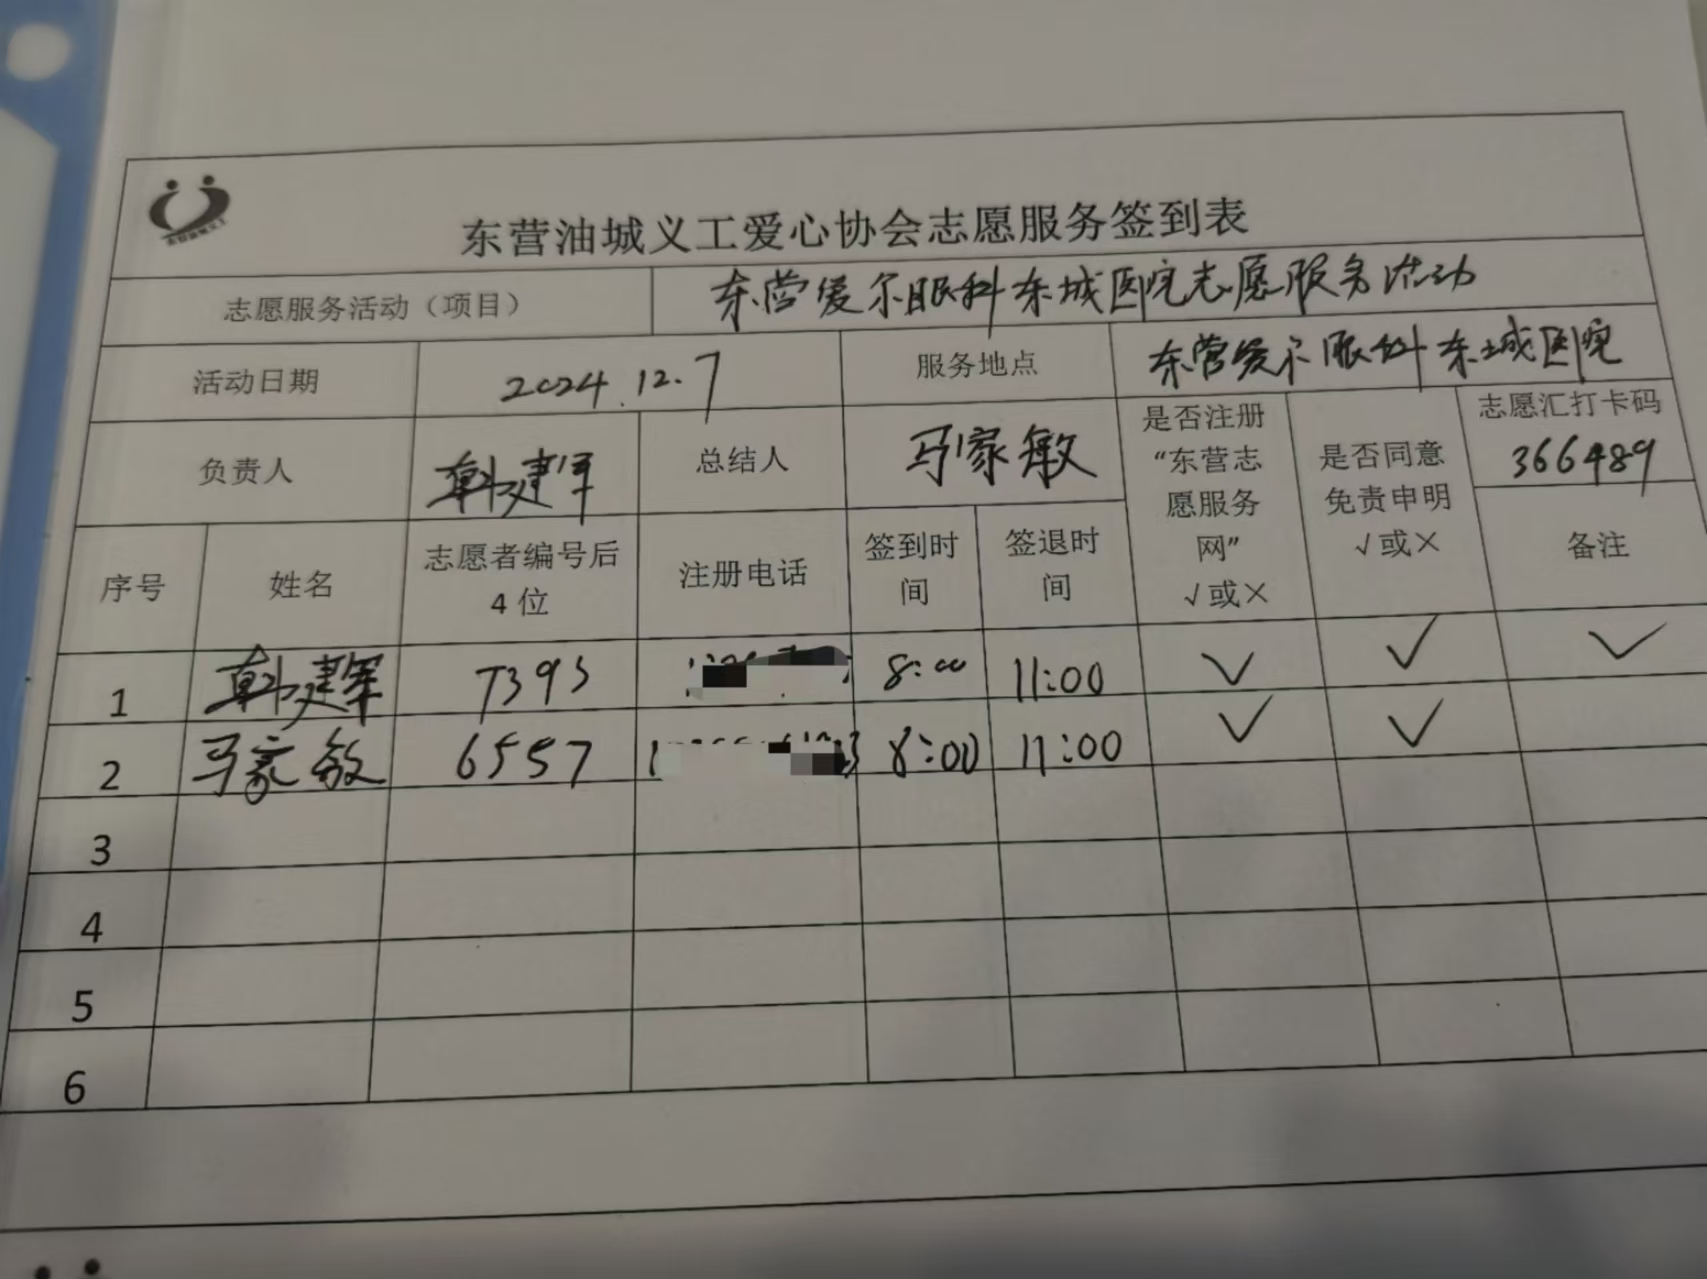 东营油城义工爱心协会志愿服务签到表
志愿服务活动（项目） 东营爱尔眼科东城医院志愿服务活动
活动日期 2024.12.7 服务地点 东营爱尔眼科东城医院
负责人 韩建军 总结人 马家敏 是否注册“东营志愿服务网”√或× 是否同意免责申明√或× 志愿汇打卡码 366489
序号 姓名 志愿者编号后4位 注册电话 签到时间 签退时间 备注
1 韩建军 7393 8:00 11:00 √ √ √
2 马家敏 6557 8:00 11:00 √ √
3
4
5
6